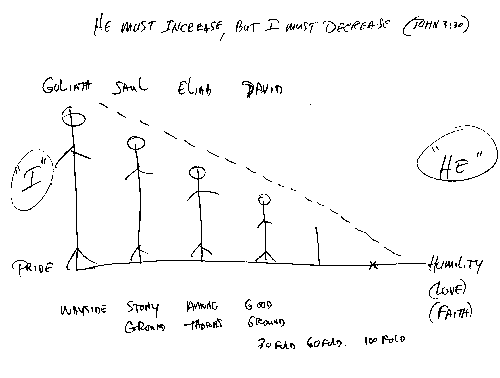 HE MUST INCREASE, BUT I MUST DECREASE (JOHN 3:30)
GOLIATH SAUL ELIAB DAVID
"I"
"HE"
PRIDE
HUMILITY
(LOVE)
(FAITH)
WAYSIDE STONY GOOD
GROUND THORNS GROUND
30 FOLD 60 FOLD. 100 FOLD